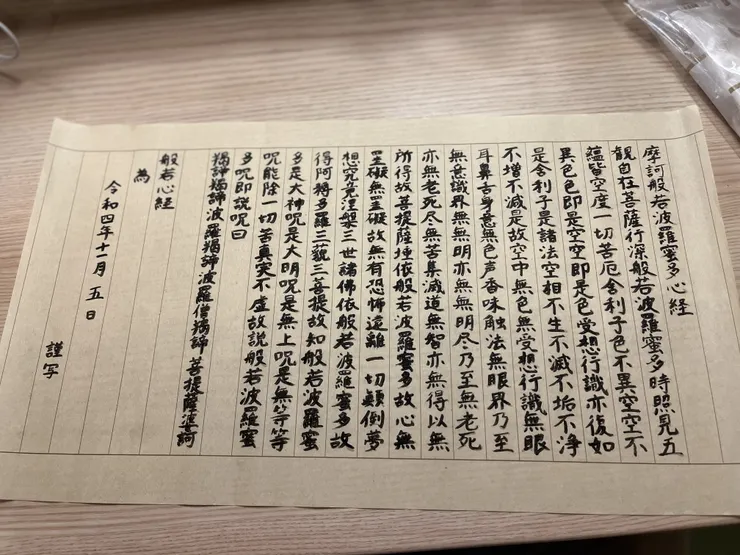 摩訶般若波羅蜜多心経
観自在菩薩行深般若波羅蜜多時照見五
蘊皆空度一切苦厄舎利子色不異空空不
異色色即是空空即是色受想行識亦復如
是舎利子是諸法空相不生不滅不垢不浄
不増不減是故空中無色無受想行識無眼
耳鼻舌身意無色声香味触法無眼界乃至
無意識界無無明亦無無明尽乃至無老死
亦無老死尽無苦集滅道無智亦無得以無
所得故菩提薩埵依般若波羅蜜多故心無
罣礙無罣礙故無有恐怖遠離一切顛倒夢
想究竟涅槃三世諸佛依般若波羅蜜多故
得阿耨多羅三藐三菩提故知般若波羅蜜
多是大神呪是大明呪是無上呪是無等等
呪能除一切苦真実不虚故説般若波羅蜜
多呪即説呪曰
羯諦羯諦波羅羯諦波羅僧羯諦 菩提薩婆訶
般若心経
為
令和四年十一月 五 日
謹写